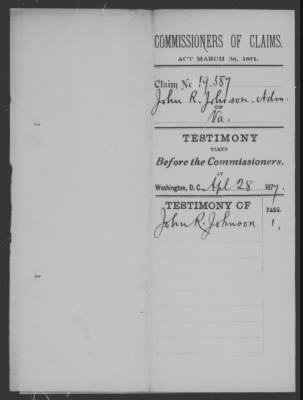 COMMISSIONERS OF CLAIMS.
ACT MARCH 3d, 1871.
Claim No 19,587
John R. Johnson. Adm.
OF
Va.
TESTIMONY
TAKEN
Before the Commissioners,
AT
Washington, D. C., Apl 28 1877.
TESTIMONY OF PAGE.
John R. Johnson 1,